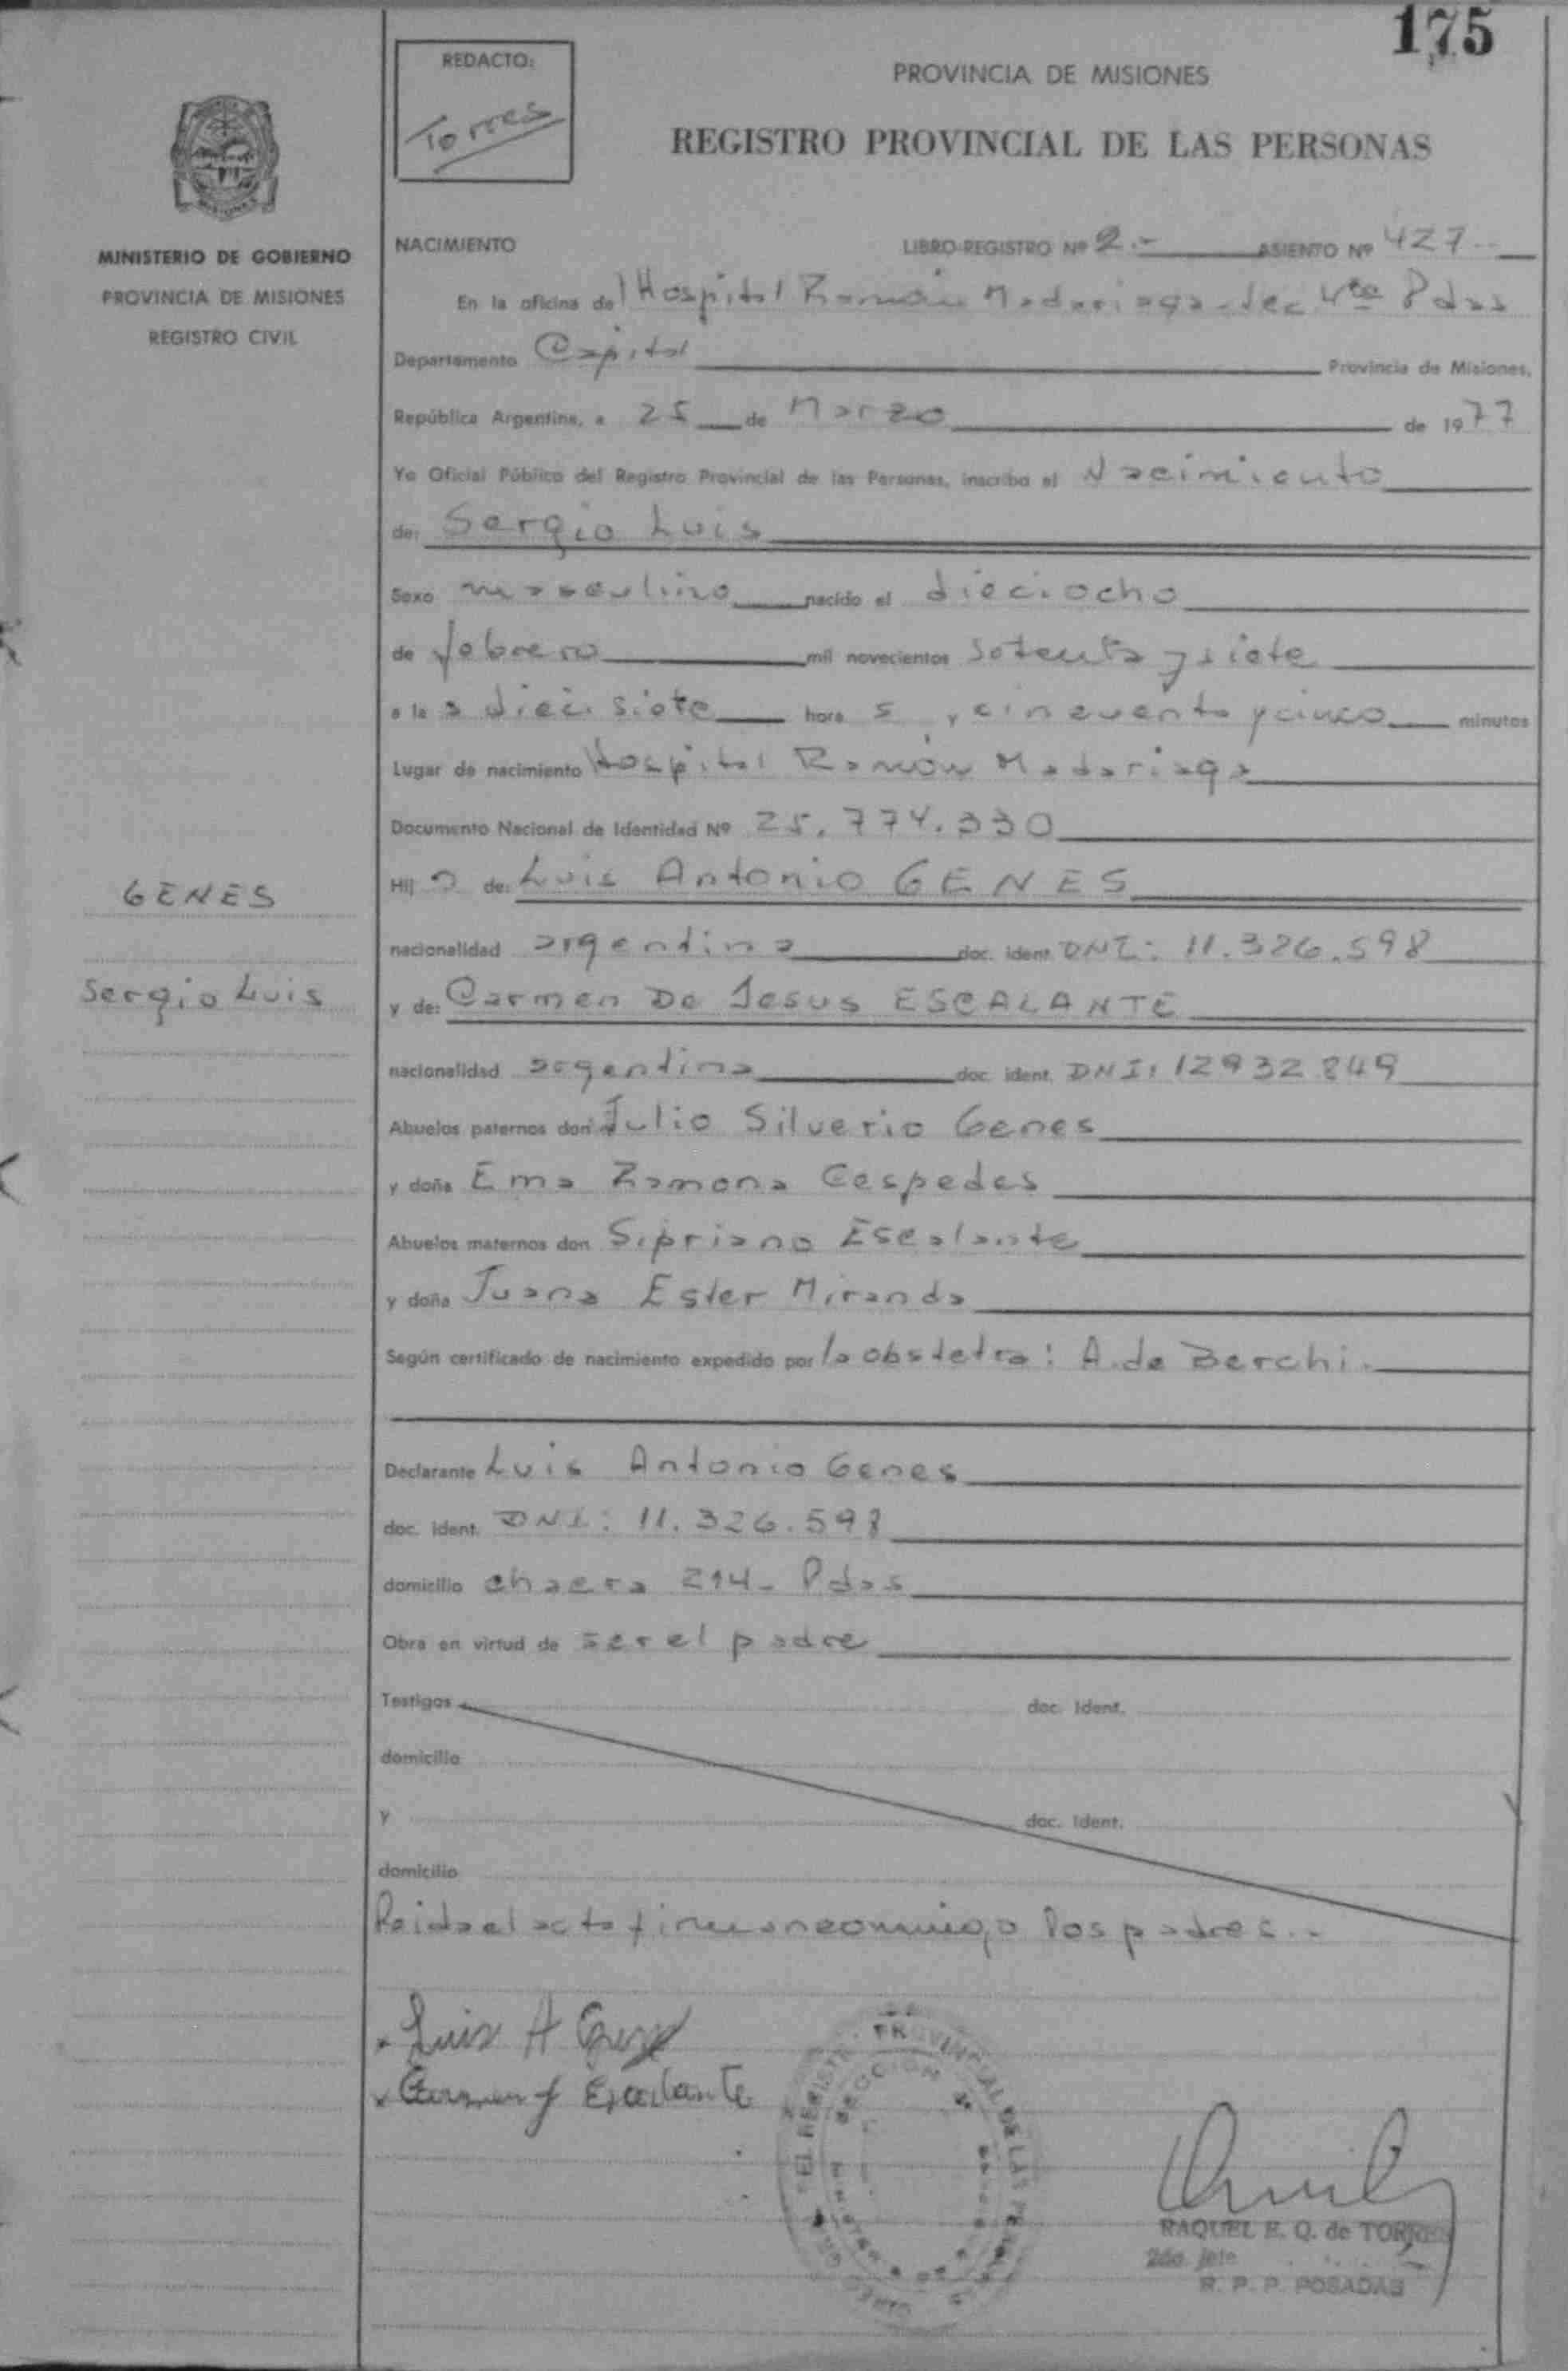 175
REDACTO:
Torres
PROVINCIA DE MISIONES
REGISTRO PROVINCIAL DE LAS PERSONAS
MINISTERIO DE GOBIERNO
PROVINCIA DE MISIONES
REGISTRO CIVIL
NACIMIENTO LIBRO-REGISTRO Nº 2.- ASIENTO Nº 427
En la oficina del Hospital Ramón Madariaga - Sec 4ta Pdas
Departamento Capital Provincia de Misiones,
República Argentina, a 25 de Marzo de 1977
Yo Oficial Público del Registro Provincial de las Personas, inscribo el Nacimiento
de: Sergio Luis
Sexo masculino nacido el dieciocho
de febrero mil novecientos setenta y siete
a las diecisiete horas, cincuenta y cinco minutos
Lugar de nacimiento Hospital Ramón Madariaga
Documento Nacional de Identidad Nº 25.774.330
Hijo de: Luis Antonio GENES
GENES
nacionalidad argentina doc. ident. DNI: 11.326.598
Sergio Luis
y de: Carmen De Jesus ESCALANTE
nacionalidad argentina doc. ident. DNI: 12932849
Abuelos paternos don Julio Silverio Genes
y doña Ema Ramona Cespedes
Abuelos maternos don Sipriano Escalante
y doña Juana Ester Miranda
Según certificado de nacimiento expedido por la obstetra: A. de Berchi.
Declarante Luis Antonio Genes
doc. ident. DNI: 11.326.598
domicilio chacra 214- Pdas
Obra en virtud de ser el padre
Testigos doc. Ident.
domicilio
y doc. Ident.
domicilio
Leida el acta firman conmigo los padres.-
Luis A Genes
Carmen J Escalante
PROVINCIAL DE LAS
SECCION
RAQUEL E. Q. de TORRES
2do. Jefe
R. P. P. POSADAS